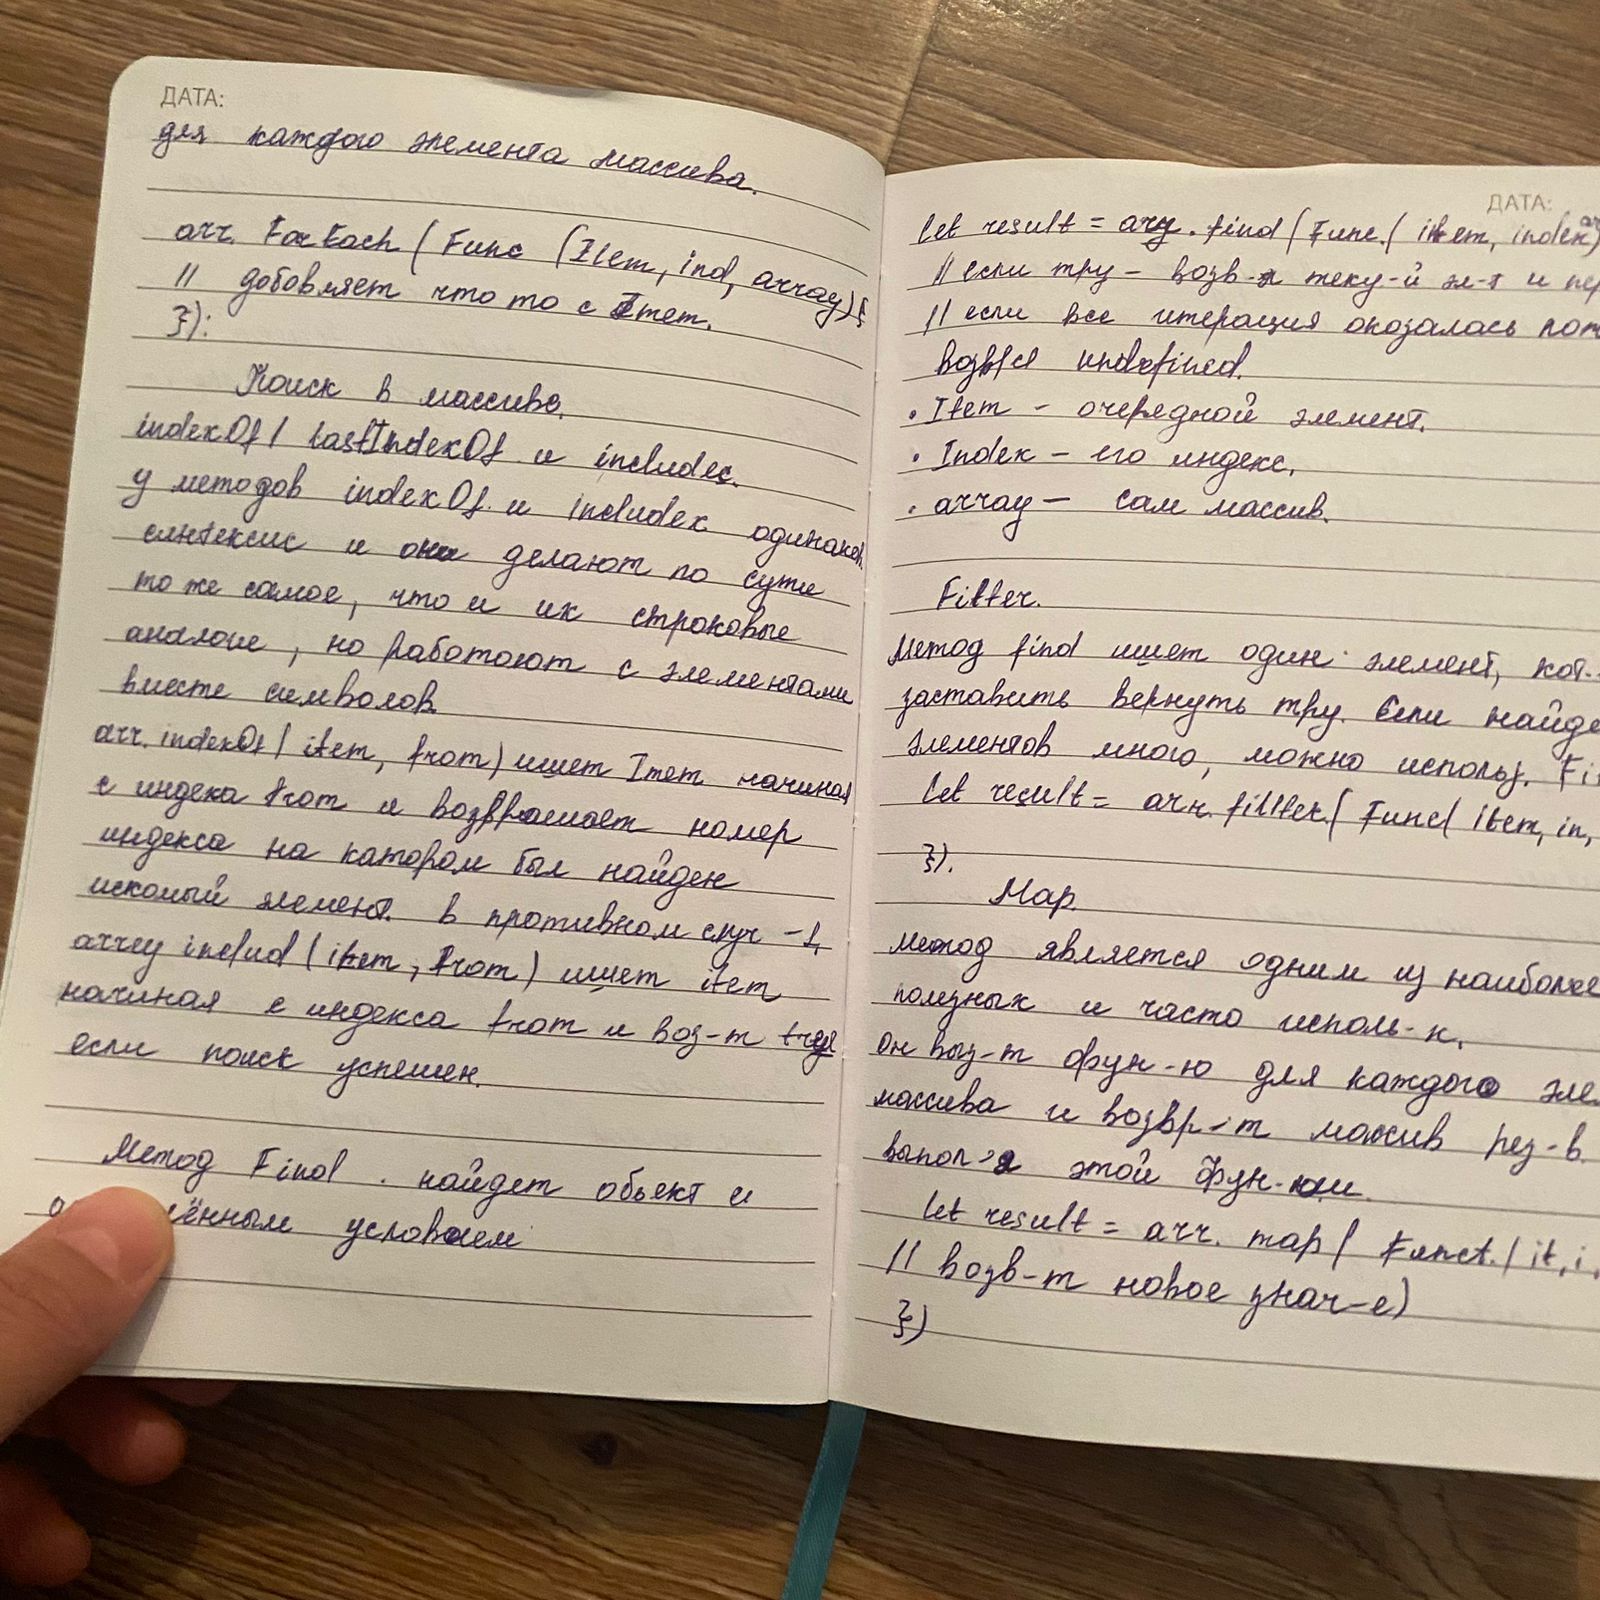 ДАТА:
для каждого элемента массива.
arr. ForEach ( Func (Item, ind, array) {
// добовляет что то с Item.
});
Поиск в массиве.
indexOf / lastIndexOf и includes.
у методов indexOf и includes одинаков.
синтексис и они делают по сути
то же самое, что и их строковые
аналоги, но работают с элементами
вместе символов.
arr. indexOf ( item, from) ищет Imem начиная
с индека from и возвращает номер
индекса на катором был найден
искомый элемент. в противном случ -1,
array includ ( item, from ) ищет item
начиная с индекса from и воз-т true
если поиск успешен.
Метод Find . найдет обьект и
лённым условием
ДАТА:
let result = arr . find ( Func. ( item, index, ar)
// если тру - возв-я теку-й эл-т и пер
// если все итерация оказалась
возв/ся undefined.
• Item - очередной элемент.
• Index - его индекс,
• array - сам массив.
Filter.
Метод find ищет один элемент, кот-
заставить вернуть тру. Если найде
элементов много, можно использ. Fi
let result = arr. fillter. ( Func( item, in,
}).
Map
метод является одним из наиболее
полезных и часто исполь-х,
он выз-т фун-ю для каждого эле
массива и возвр-т массив рез-в.
выпол-я этой фун-юи.
let result = arr. map ( Funct. ( it, i,
// возв-т новое знач-е)
})